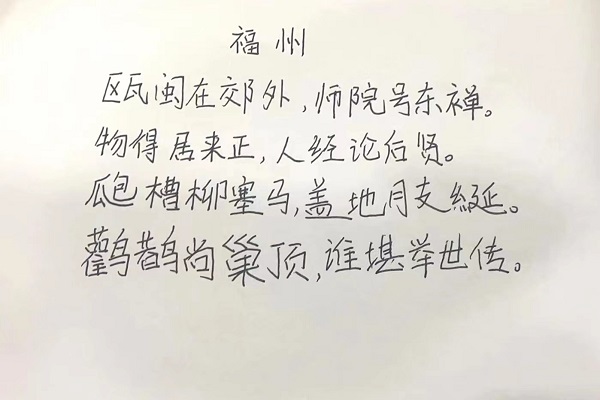 福州
瓯闽在郊外，师院号东禅。
物得居来正，人经论后贤。
匏槽柳塞马，盖地月支綖。
鹳鹊尚巢顶，谁堪举世传。